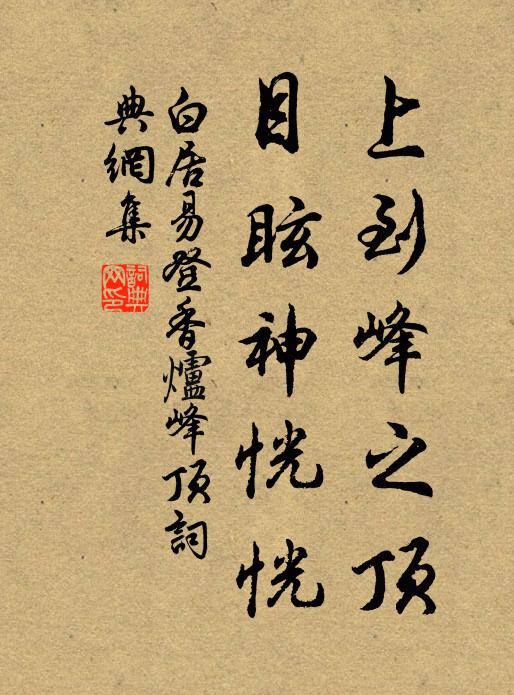 上到峰之顶
目眩神恍恍
白居易登香爐峰顶詞
典網集
詞典網印